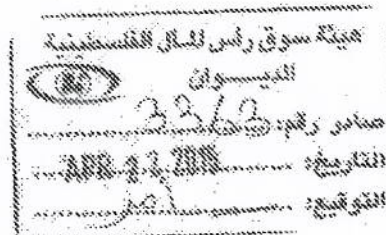 هيئة سوق رأس المال الفلسطينية
الديـــوان
صادر رقم:
التاريخ: APR 2018
التوقيع: